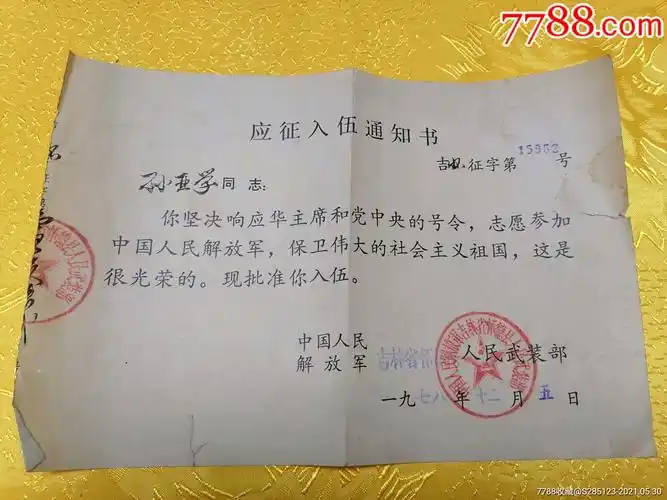 7788.com
应征入伍通知书
征字第15982号
孙亚学同志:
你坚决响应华主席和党中央的号令,志愿参加
中国人民解放军,保卫伟大的社会主义祖国,这是
很光荣的。现批准你入伍。
中国人民
解放军 吉林省 人民武装部
一九七八年十二月五日
7788收藏@S285123-2021.05.30